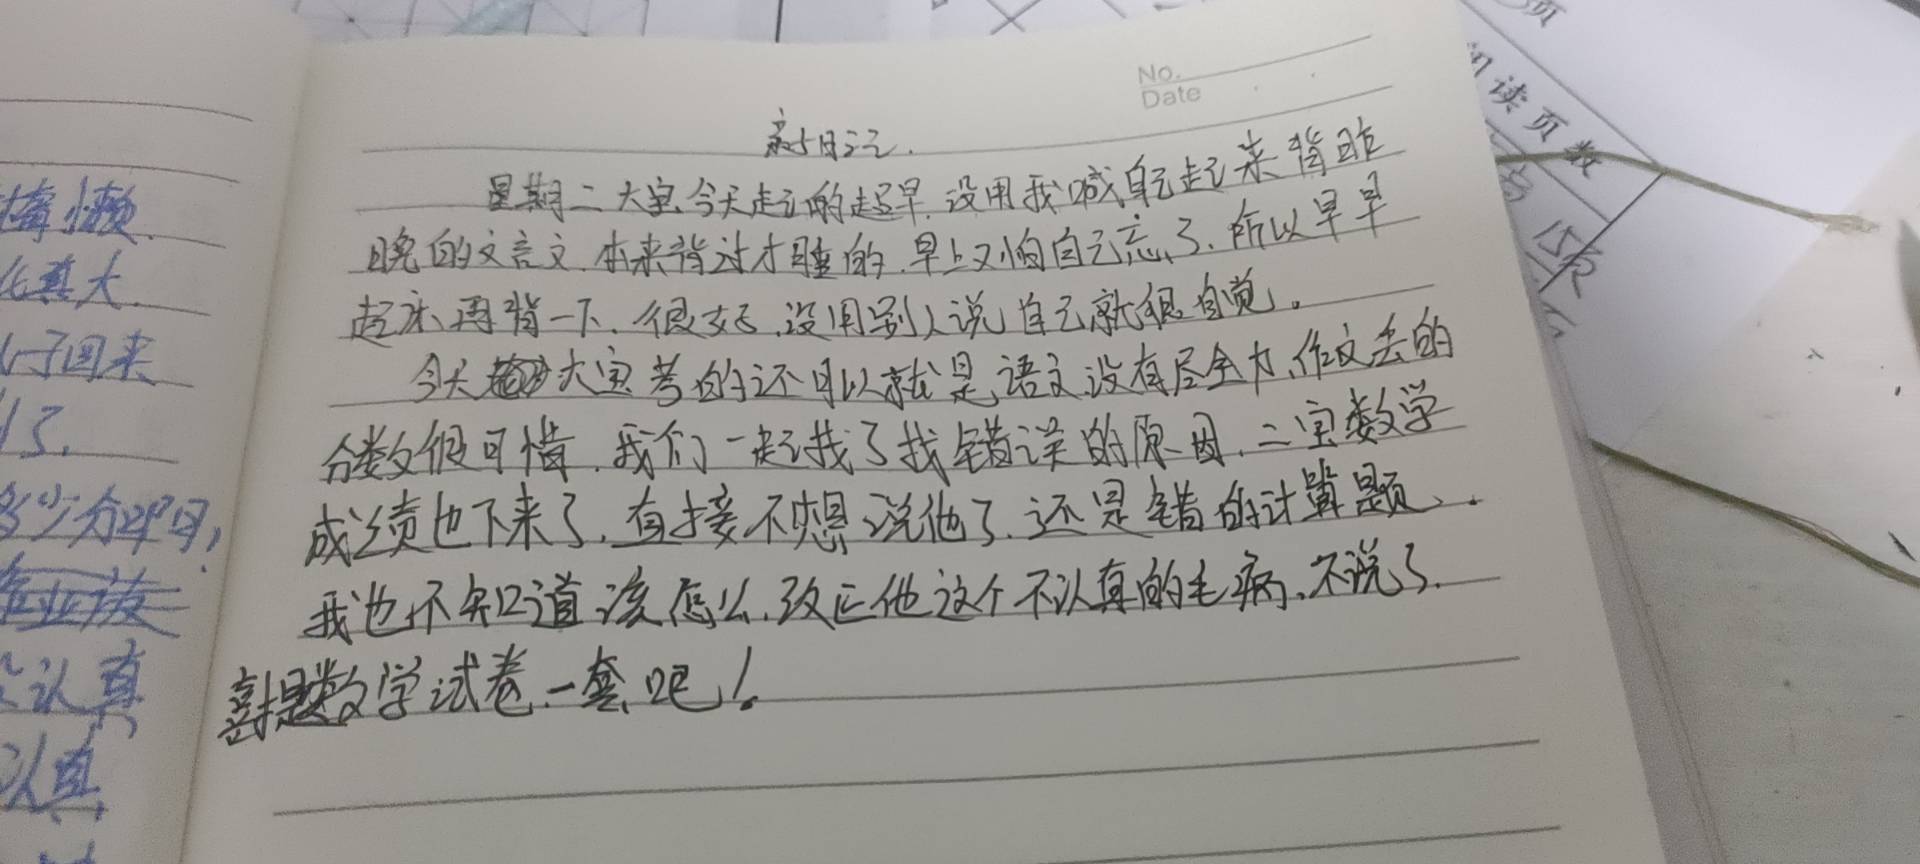 No.
Date
亲子日记.
星期二大宝今天起的超早.没用我喊自己起来背昨
晚的文言文.本来背过才睡的.早上又怕自己忘了.所以早早
起床再背一下.很好.没用别人说自己就很自觉。
今天大宝考的还可以就是语文没有尽全力.作文丢的
分数很可惜.我们一起找了找错误的原因.二宝数学
成绩也下来了.直接不想说他了.还是错的计算题.
我也不知道该怎么改正他这个不认真的毛病.不说了.
喜提数学试卷一套吧!
偷懒
真大
回来
了.
多少分
认真
认真
阅读页数
页